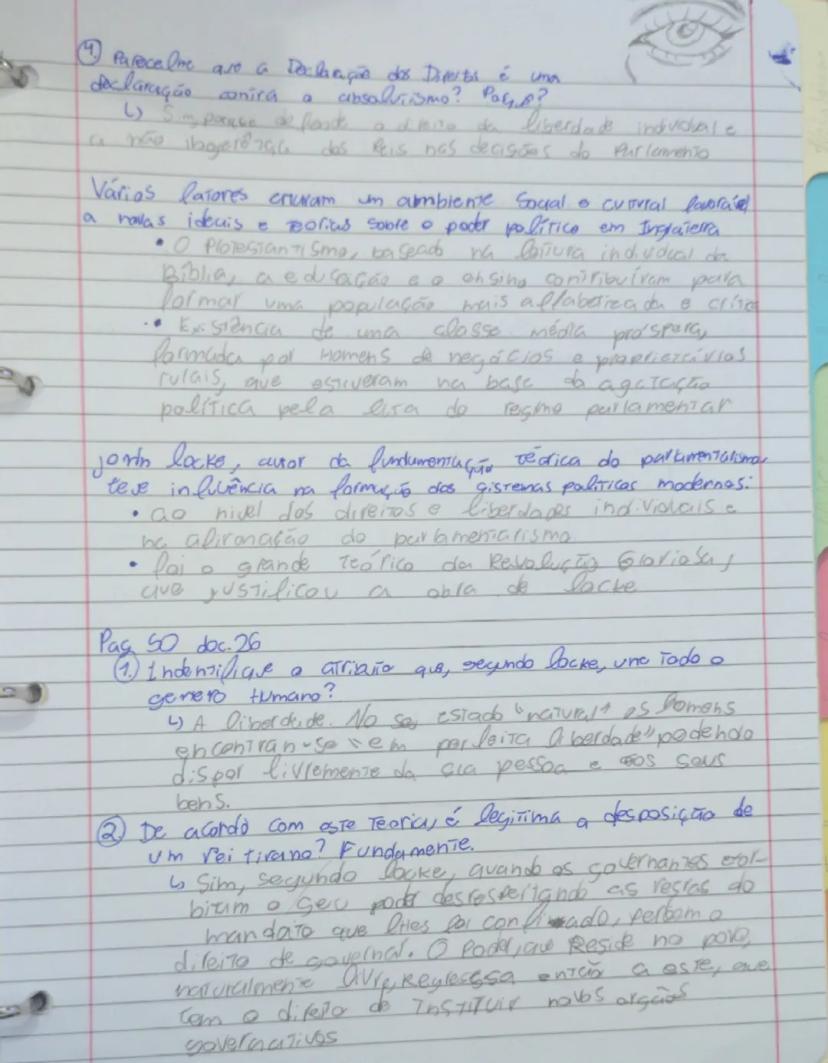 4. Parecelhe que a Declaração dos Direitos é uma
declaração contra o absolutismo? Porquê?
↳ Sim, porque defende o direito da liberdade individual e
a não ingerência dos Reis nas decisões do Parlamento
Vários fatores criaram um ambiente social e cultural favorável
a novas ideais e teorias sobre o poder político em Inglaterra
• O Protestantismo, baseado na leitura individual da
Bíblia, a educação e o ensino contribuíram para
formar uma população mais alfabetizada e crítica
• Existência de uma classe média próspera,
formada por Homens de negócios e proprietários
rurais, que estiveram na base da agitação
política pela luta do regime parlamentar
John locke, autor da fundamentação teórica do parlamentalismo
teve influência na formação dos sistemas políticos modernos:
• ao nível dos direitos e liberdades individuais e
na afirmação do parlamentarismo
• foi o grande teórico da Revolução Gloriosa,
que justificou a obra de locke
Pag 50 doc.26
1. Indentifique o que, segundo locke, une todo o
genero Humano?
↳ A liberdade. No seu estado "natural" os homens
encontran-se "em perfeita liberdade" podendo
dispor livremente da sua pessoa e dos seus
bens.
2. De acordo com este Teoria, é legítima a desposição de
um rei tirano? Fundamente.
↳ Sim, segundo locke, quando os governantes exor-
bitam o seu poder desrespeitando as regras do
mandato que lhes foi confinado, perdem o
direito de governar. O Poder, que Reside no povo,
naturalmente livre, Regressa então a este, que
tem o direito de Instituir novos orgãos
governativos